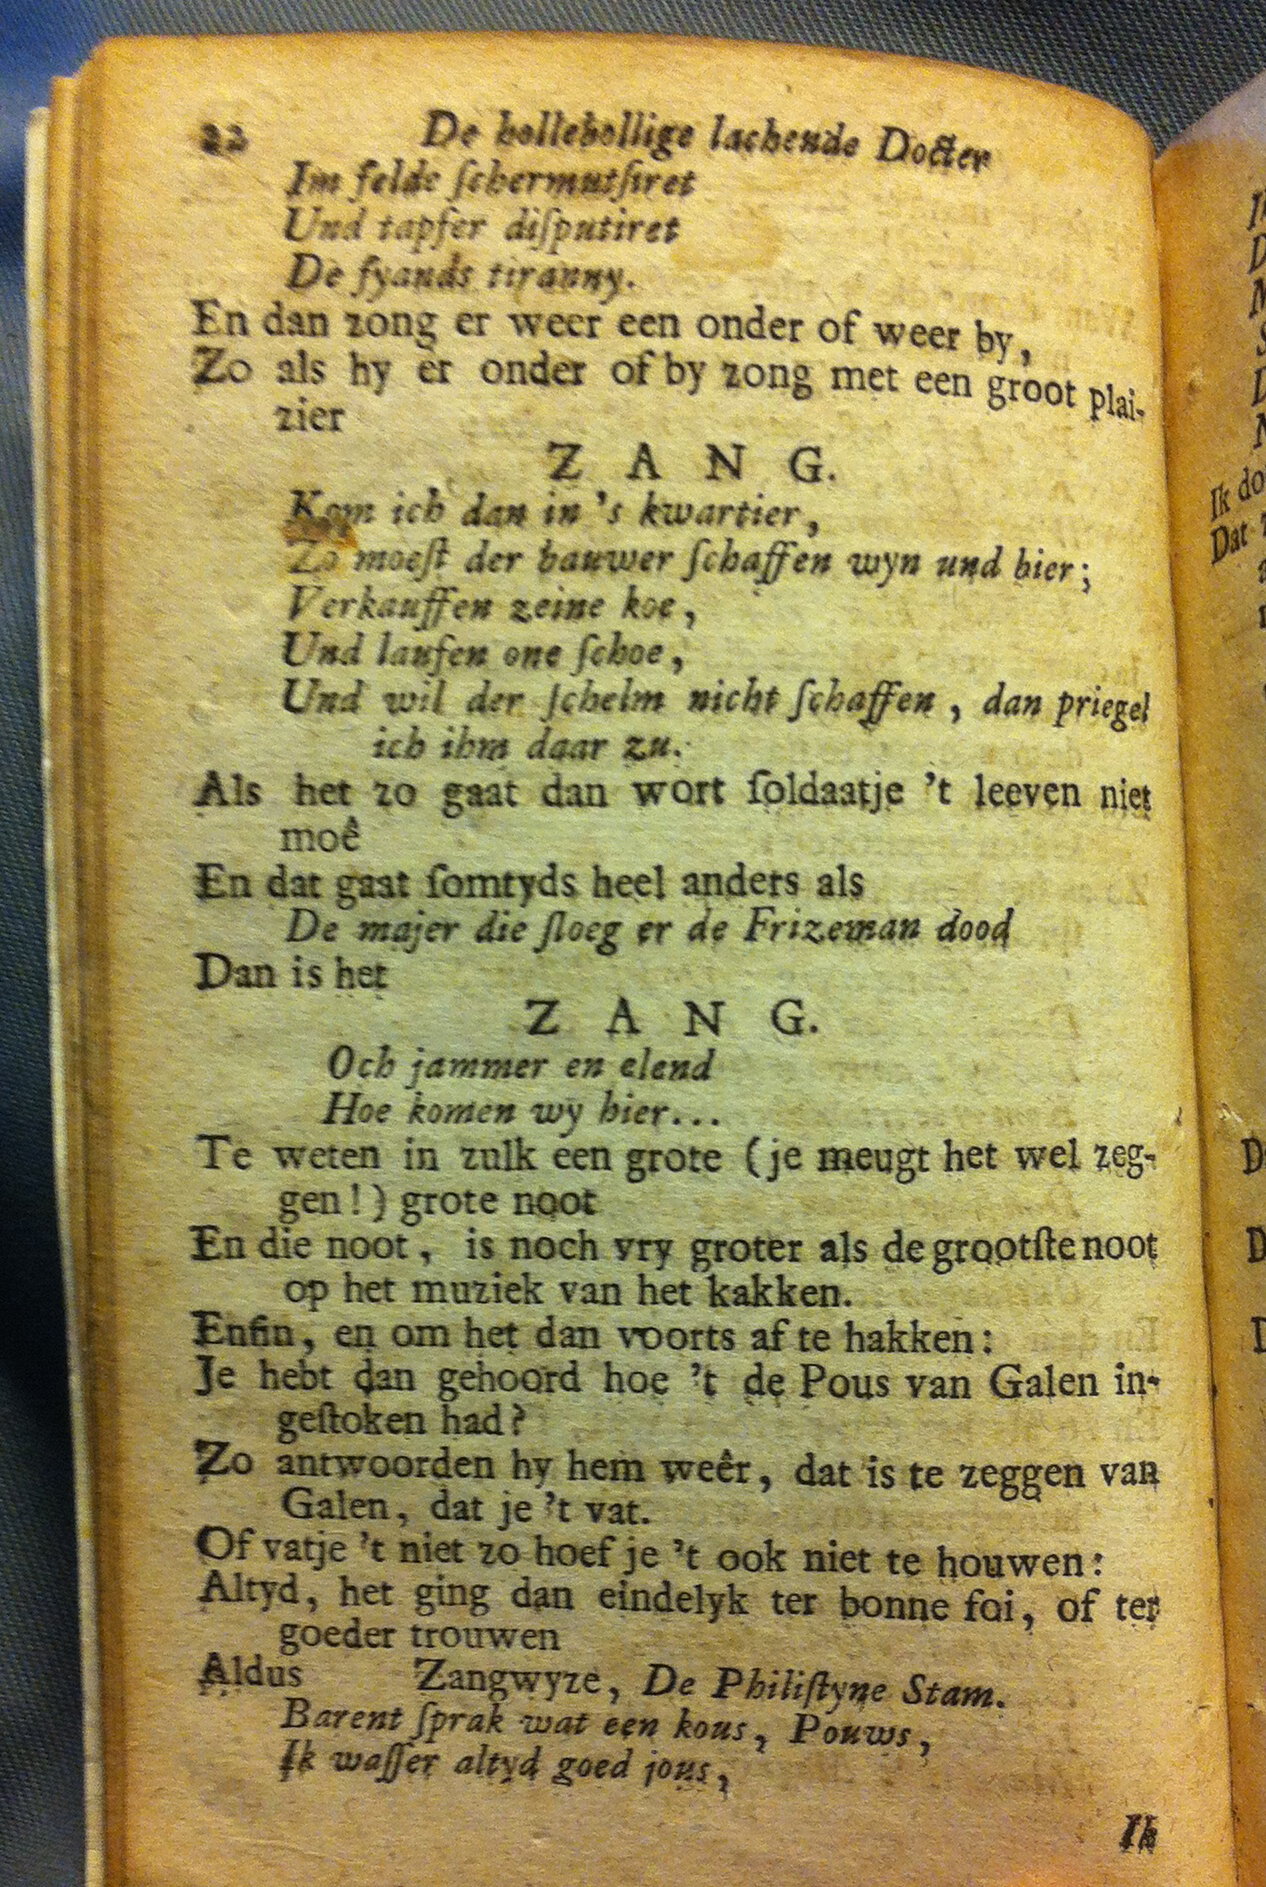 22 De bollebollige lachende Docter
Im felde ſchermutſiret
Und tapfer diſputiret
De fyands tiranny.
En dan zong er weer een onder of weer by,
Zo als hy er onder of by zong met een groot plai-
zier
Z A N G.
Kom ich dan in 's kwartier,
Zo moeſt der bauwer ſchaffen wyn und bier;
Verkauffen zeine koe,
Und laufen one ſchoe,
Und wil der ſchelm nicht ſchaffen, dan priegel
ich ihm daar zu.
Als het zo gaat dan wort ſoldaatje 't leeven niet
moê
En dat gaat ſomtyds heel anders als
De majer die ſloeg er de Frizeman dood
Dan is het
Z A N G.
Och jammer en elend
Hoe komen wy hier...
Te weten in zulk een grote (je meugt het wel zeg-
gen!) grote noot
En die noot, is noch vry groter als de grootſte noot
op het muziek van het kakken.
Enfin, en om het dan voorts af te hakken:
Je hebt dan gehoord hoe 't de Pous van Galen in-
geſtoken had?
Zo antwoorden hy hem weêr, dat is te zeggen van
Galen, dat je 't vat.
Of vatje 't niet zo hoef je 't ook niet te houwen:
Altyd, het ging dan eindelyk ter bonne foi, of ter
goeder trouwen
Aldus Zangwyze, De Philiſtyne Stam.
Barent ſprak wat een kous, Pouws,
Ik waſſer altyd goed jous,
Ik